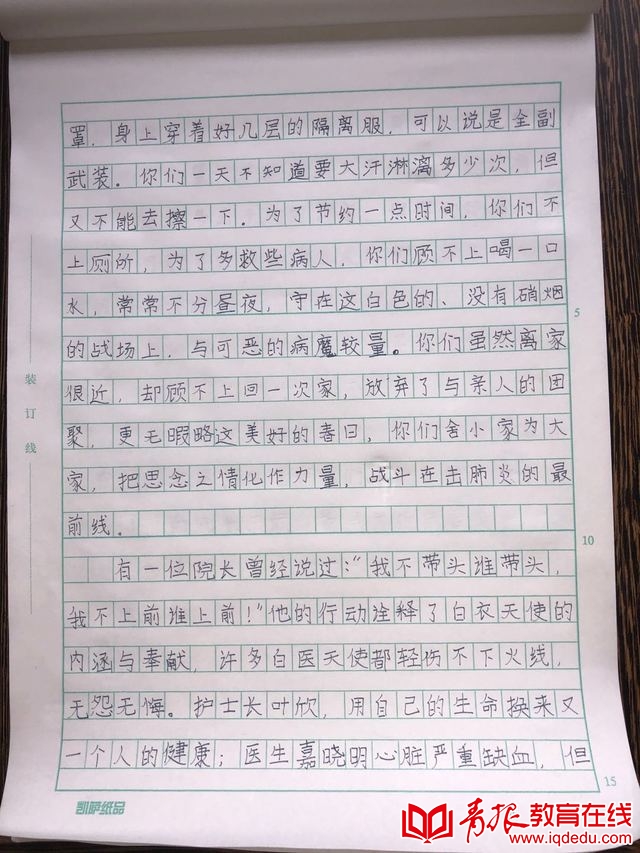 罩，身上穿着好几层的隔离服，可以说是全副
武装。你们一天不知道要大汗淋漓多少次，但
又不能去擦一下。为了节约一点时间，你们不
上厕所，为了多救些病人，你们顾不上喝一口
水，常常不分昼夜，守在这白色的、没有硝烟
5
的战场上，与可恶的病魔较量。你们虽然离家
很近，却顾不上回一次家，放弃了与亲人的团
聚，更无暇略这美好的春日，你们舍小家为大
家，把思念之情化作力量，战斗在击肺炎的最
前线。
10
有一位院长曾经说过：“我不带头谁带头，
我不上前谁上前！”他的行动诠释了白衣天使的
内涵与奉献，许多白医天使都轻伤不下火线，
无怨无悔。护士长叶欣，用自己的生命换来又
一个人的健康；医生嘉晓明心脏严重缺血，但
15
装订线
凯萨纸品
青报教育在线
www.iqdedu.com